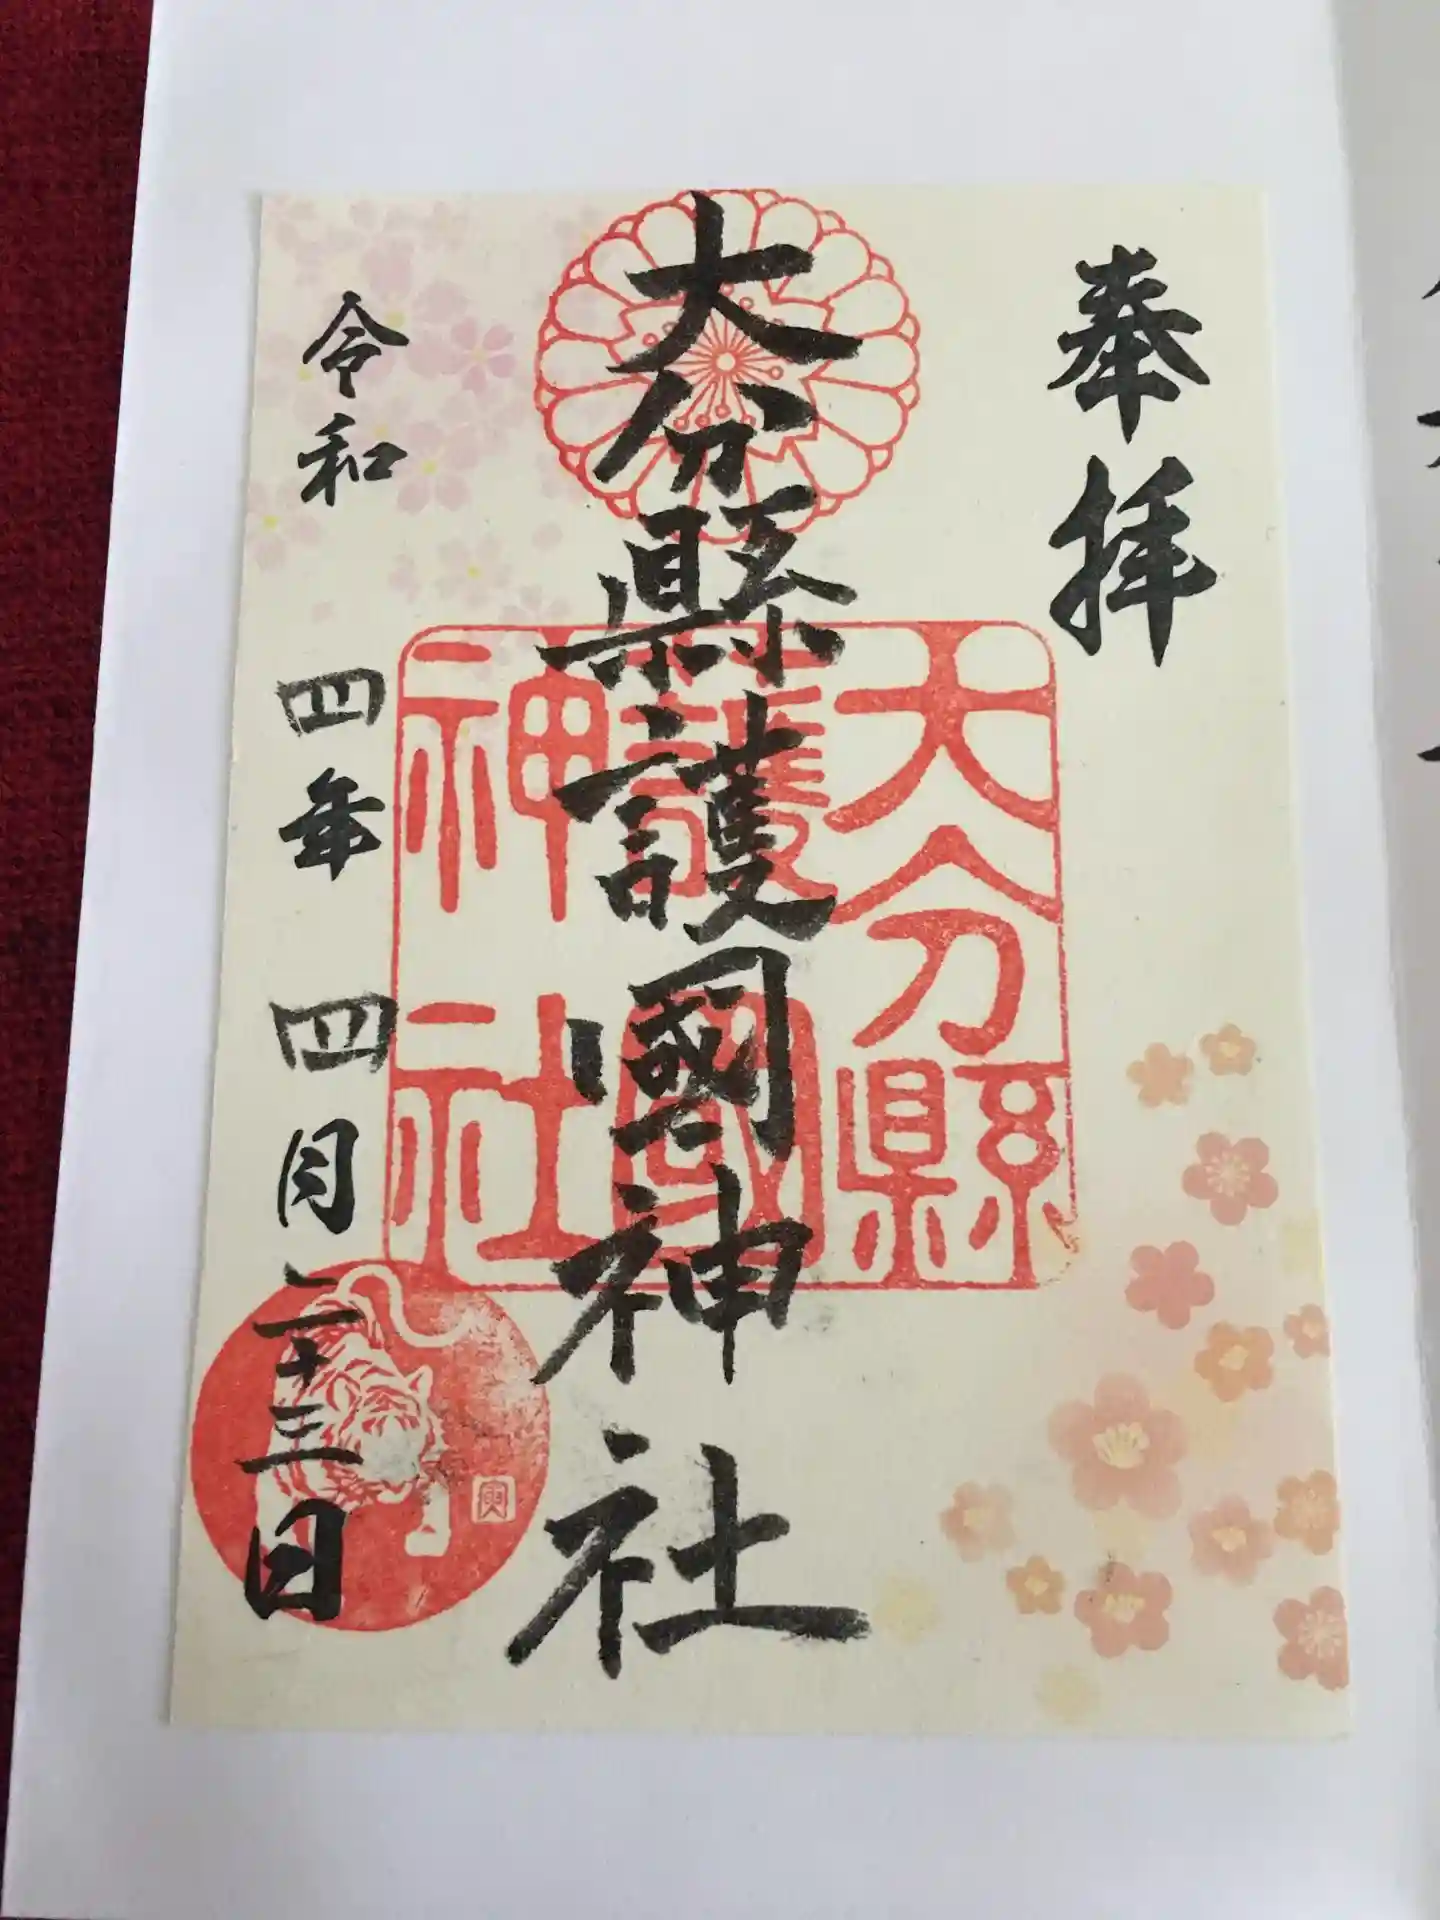 奉拝
大分縣護國神社
大分縣
護國
神社
令和四年四月二十三日
寅